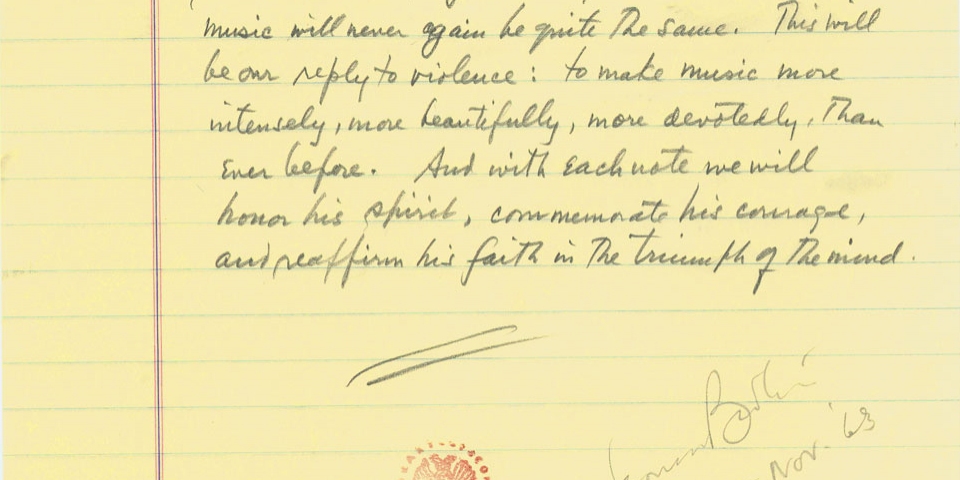 music will never again be quite the same. This will
be our reply to violence: to make music more
intensely, more beautifully, more devotedly, than
ever before. And with each note we will
honor his spirit, commemorate his courage,
and reaffirm his faith in the triumph of the mind.
Nov. '63